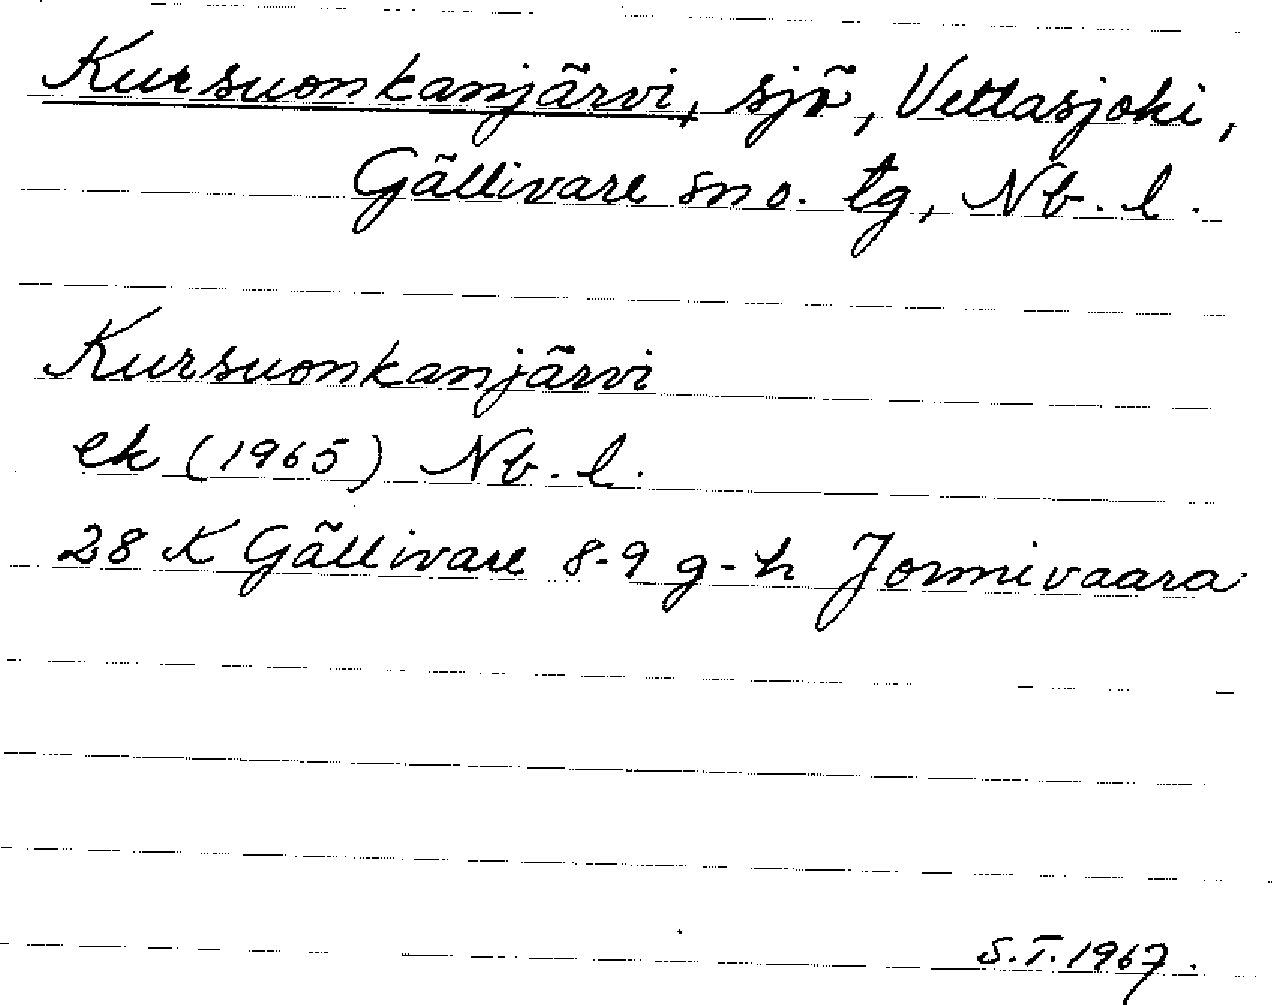 Kursuonkanjärvi, sjö, Vettasjoki,
Gällivare sn o. tg, Nb. l.
Kursuonkanjärvi
ek (1965) Nb. l.
28 K Gällivare 8-9 g-h Jonnivaara
S.T. 1967.